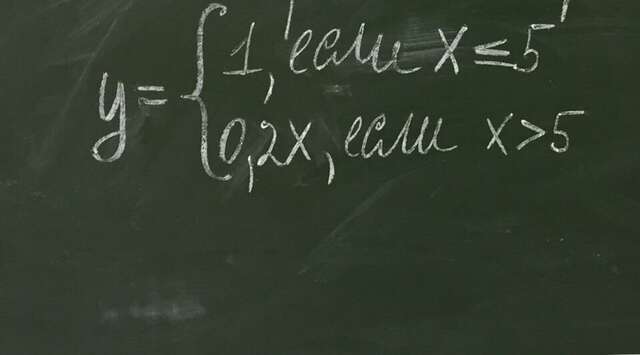 y = { 1, если x ≤ 5
0,2x, если x > 5